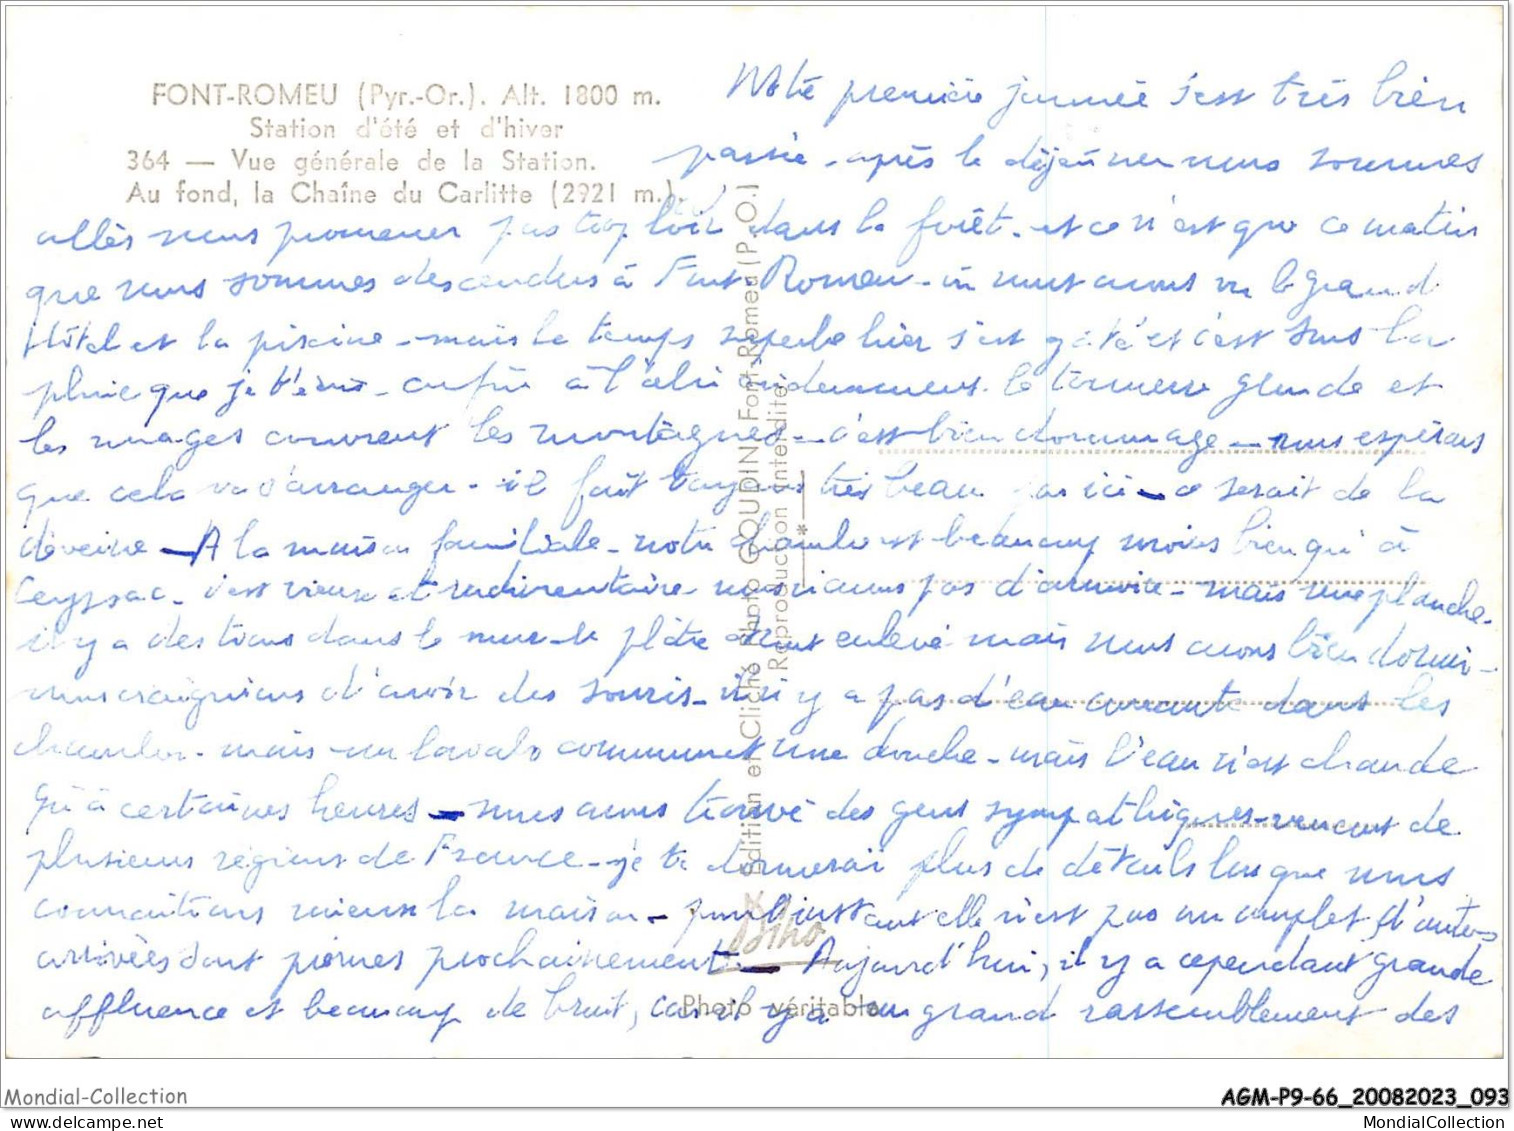 FONT-ROMEU (Pyr.-Or.). Alt. 1800 m.
Station d'été et d'hiver
364 — Vue générale de la Station.
Au fond, la Chaîne du Carlitte (2921 m.).
Notre première journée s'est très bien
passée - après le déjeuner nous sommes
allés nous promener pas trop loin dans la forêt - et ce n'est que ce matin
que nous sommes descendus à Font Romeu - où nous avons vu le Grand
Hôtel et la piscine - mais le temps superbe hier s'est gâté et c'est sous la
pluie que je t'écris - enfin à l'abri évidemment. le tonnerre gronde et
les nuages couvrent les montagnes - c'est bien dommage - nous espérons
que cela va s'arranger - il fait toujours très beau par ici - ce serait de la
déveine - A la maison familiale - notre chambre est beaucoup moins bien qu'à
Ceyssac - c'est vieux et rudimentaire - nous n'avons pas d'armoire - mais une planche -
il y a des trous dans le mur - le plâtre enlevé mais nous avons bien dormi -
nous craignions d'avoir des souris - il n'y a pas d'eau courante dans les
chambres - mais un lavabo commun et une douche - mais l'eau n'est chaude
qu'à certaines heures - nous avons trouvé des gens sympathiques - venant de
plusieurs régions de France - je te donnerai plus de détails lorsque nous
connaitrons mieux la maison - pour l'instant elle n'est pas au complet d'autres
arrivées sont prévues prochainement - Aujourd'hui, il y a cependant grande
affluence et beaucoup de bruit, car il y a un grand rassemblement des
Edition et Cliché Photo GOUDIN Font-Romeu (P.O.)
Reproduction interdite
Photo véritable
Mondial-Collection
AGM-P9-66_20082023_093
MondialCollection